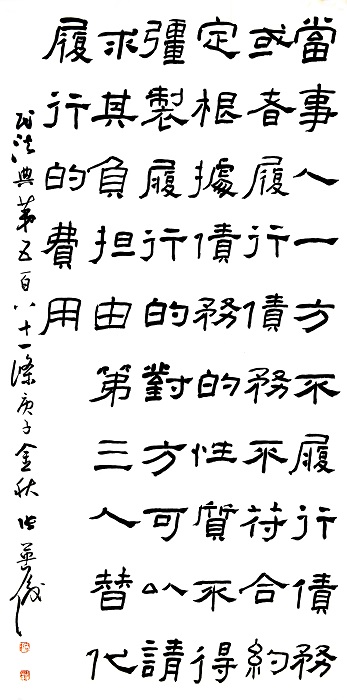 當事人一方不履行債務
或者履行債務不符合約
定根據債務的性質不得
彊製履行的對方可以請
求其負担由第三人替代
履行的費用
民法典第五百八十一條庚子金秋